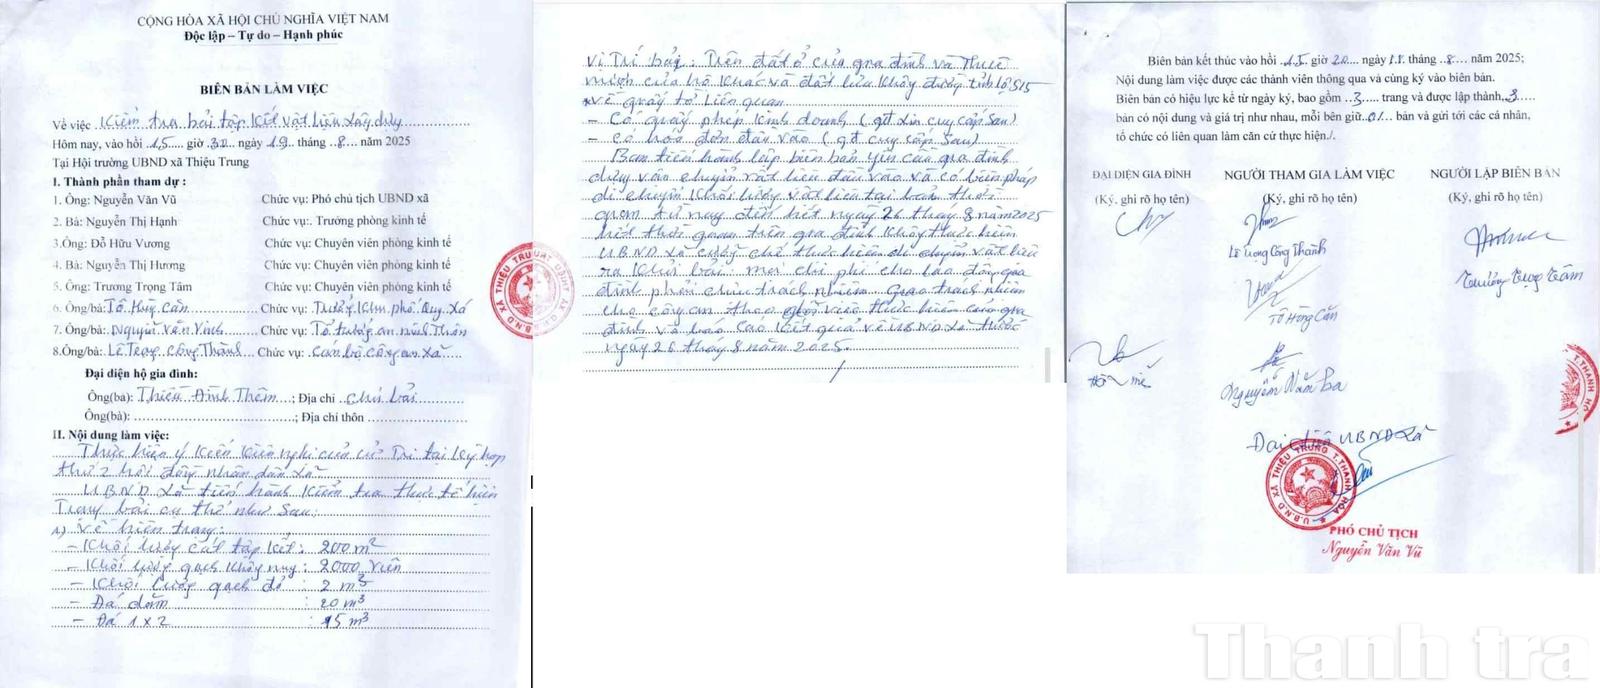 CỘNG HÒA XÃ HỘI CHỦ NGHĨA VIỆT NAM
Độc lập – Tự do – Hạnh phúc
BIÊN BẢN LÀM VIỆC
Về việc Kiểm tra bãi tập kết vật liệu xây dựng
Hôm nay, vào hồi 15 giờ 30 ngày 19 tháng 8 năm 2025
Tại Hội trường UBND xã Thiệu Trung
I. Thành phần tham dự :
1. Ông: Nguyễn Văn Vũ Chức vụ: Phó chủ tịch UBND xã
2. Bà: Nguyễn Thị Hạnh Chức vụ:. Trưởng phòng kinh tế
3.Ông: Đỗ Hữu Vương Chức vụ: Chuyên viên phòng kinh tế
4. Bà: Nguyễn Thị Hương Chức vụ: Chuyên viên phòng kinh tế
5. Ông: Trương Trọng Tâm Chức vụ: Chuyên viên phòng kinh tế
6. Ông/bà: Tô Chức vụ: Trưởng Khu phố Quy Xá
7. Ông/bà: Nguyễn Văn Chức vụ: Tổ trưởng an ninh Thôn
8.Ông/bà: Lê Trọng Công Thành Chức vụ: Cán bộ công an xã
Đại diện hộ gia đình:
Ông(bà): Thiều Đình Thêm ; Địa chỉ chủ bãi
Ông(bà): ; Địa chỉ thôn
II. Nội dung làm việc:
Thực hiện ý kiến kiến nghị của cử Tri tại kỳ họp
thứ 2 hội đồng nhân dân xã
UBND xã tiến hành kiểm tra thực tế hiện
Trạng bãi cụ thể như sau:
1) Về hiện trạng:
- Khối lượng cát tập kết: 200 m²
- Khối lượng gạch không nung: 2000 viên
- Khối lượng gạch đỏ : 2 m³
- Đá dăm : 20 m³
- Đá 1 x 2 : 15 m³
Vị Trí bãi: Trên đất ở của gia đình và Thuê
mượn của hộ khác và đất lúa không đường tỉnh lộ 515
* về giấy tờ liên quan
- Có giấy phép kinh doanh ( gđ xin cung cấp sau)
- Có hóa đơn đầu vào ( gđ cung cấp sau)
Ban tiến hành lập biên bản yêu cầu gia đình
dừng vận chuyển vật liệu đầu vào và có biện pháp
di chuyển khối lượng vật liệu tại bãi thời
gian từ nay đến hết ngày 26 tháng 8 năm 2025
hết thời gian trên gia đình không thực hiện
UBND xã cưỡng chế thực hiện di chuyển vật liệu
ra khỏi bãi: mọi chi phí cho lao động gia
đình phải chịu trách nhiệm. Giao trách nhiệm
cho công an theo việc thực hiện của gia
đình và báo cáo kết quả về UBND xã trước
ngày 26 tháng 8 năm 2025.
Biên bản kết thúc vào hồi 15 giờ ngày tháng 8 năm 2025;
Nội dung làm việc được các thành viên thông qua và cùng ký vào biên bản.
Biên bản có hiệu lực kể từ ngày ký, bao gồm 3 trang và được lập thành 3
bản có nội dung và giá trị như nhau, mỗi bên giữ 01 bản và gửi tới các cá nhân,
tổ chức có liên quan làm căn cứ thực hiện./.
ĐẠI DIỆN GIA ĐÌNH NGƯỜI THAM GIA LÀM VIỆC NGƯỜI LẬP BIÊN BẢN
(Ký, ghi rõ họ tên) (Ký, ghi rõ họ tên) (Ký, ghi rõ họ tên)
Lê Trọng Công Thành
Trương Trọng Tâm
Nguyễn Văn Ba
Đại diện UBND xã
U.B.N.D XÃ THIỆU TRUNG T.THANH HÓA
PHÓ CHỦ TỊCH
Nguyễn Văn Vũ
Thanh tra